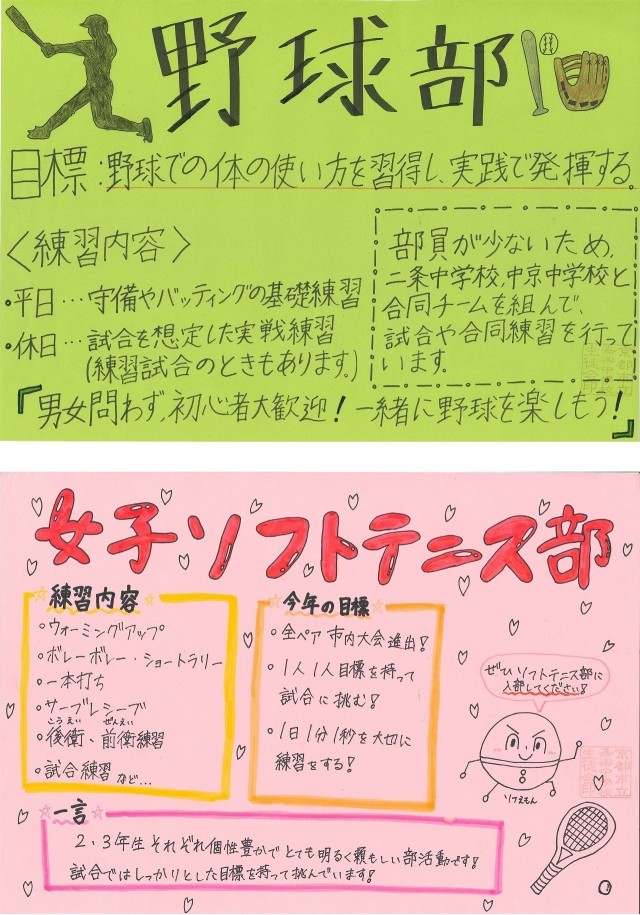 野球部
目標:野球での体の使い方を習得し、実践で発揮する。
〈練習内容〉
・平日…守備やバッティングの基礎練習
・休日…試合を想定した実戦練習
(練習試合のときもあります。)
部員が少ないため、
二条中学校、中京中学校と
合同チームを組んで、
試合や合同練習を行って
います。
『男女問わず、初心者大歓迎!一緒に野球を楽しもう!』
女子ソフトテニス部
☆練習内容☆
・ウォーミングアップ
・ボレーボレー・ショートラリー
・一本打ち
・サーブレシーブ
こうえい ぜんえい
・後衛、前衛練習
・試合練習 など…
☆今年の目標☆
・全ペア市内大会進出!
・1人1人目標を持って
試合に挑む!
・1日1分1秒を大切に
練習をする!
ぜひソフトテニス部に
入部してください!
ソフえもん
☆一言☆
2、3年生それぞれ個性豊かでとても明るく頼もしい部活動です!
試合ではしっかりとした目標を持って挑んでいます!